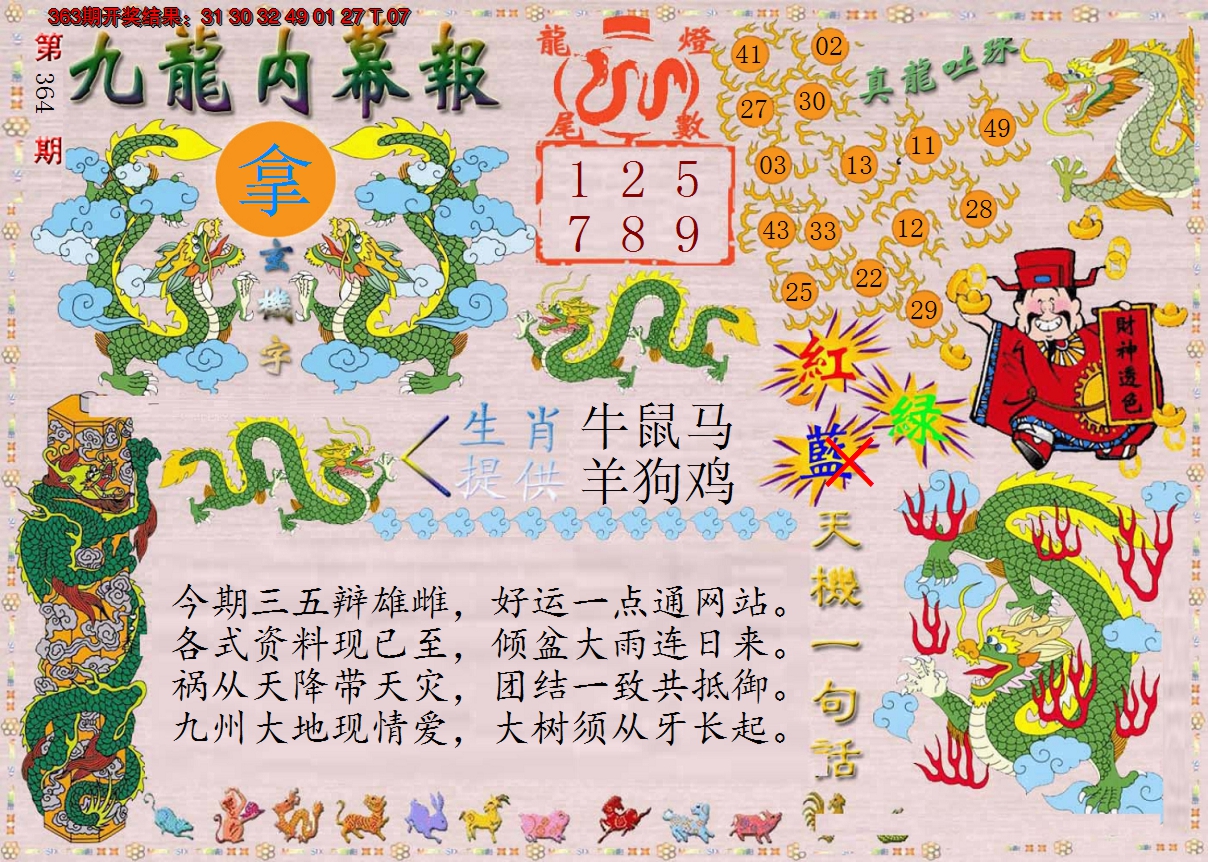 363期开奖结果：31 30 32 49 01 27 T 07
第364期
九龍内幕報
拿
玄機字
龍燈
尾數
1 2 5
7 8 9
真龍吐珠
41 02
27 30
03 13 11 49
43 33 12 28
25 22 29
財神透色
紅
绿
藍
生肖 牛鼠马
提供 羊狗鸡
天機一句话
今期三五辩雄雌，好运一点通网站。
各式资料现已至，倾盆大雨连日来。
祸从天降带天灾，团结一致共抵御。
九州大地现情爱，大树须从牙长起。